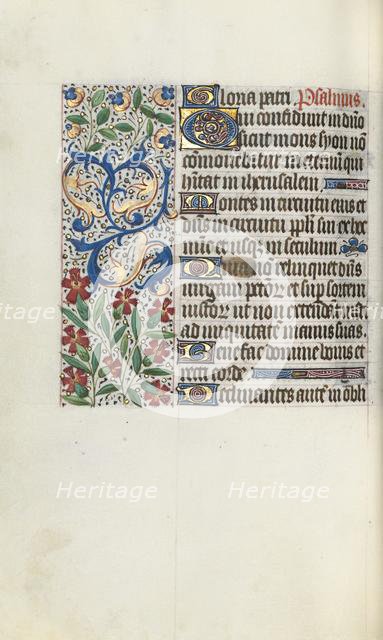 Gloria patri Psalmus.
Qui confidunt in dño
sicut mons syon nõ
comovebitur in eternũ qui
hitat in iherusalem
Montes in circuitu eius et
dñs in circuitu ppli sui ex hoc
nuc et usqz in seculum
relinquet dñs
virgam petõr et sup sortem
iustor ut non extendant
ad iniquitatẽ manus suas.
Bene fac domine bonis et
recti corde
Declinantes autẽ in obli
Heritage
Heritage
Heritage
Heritage
Heritage